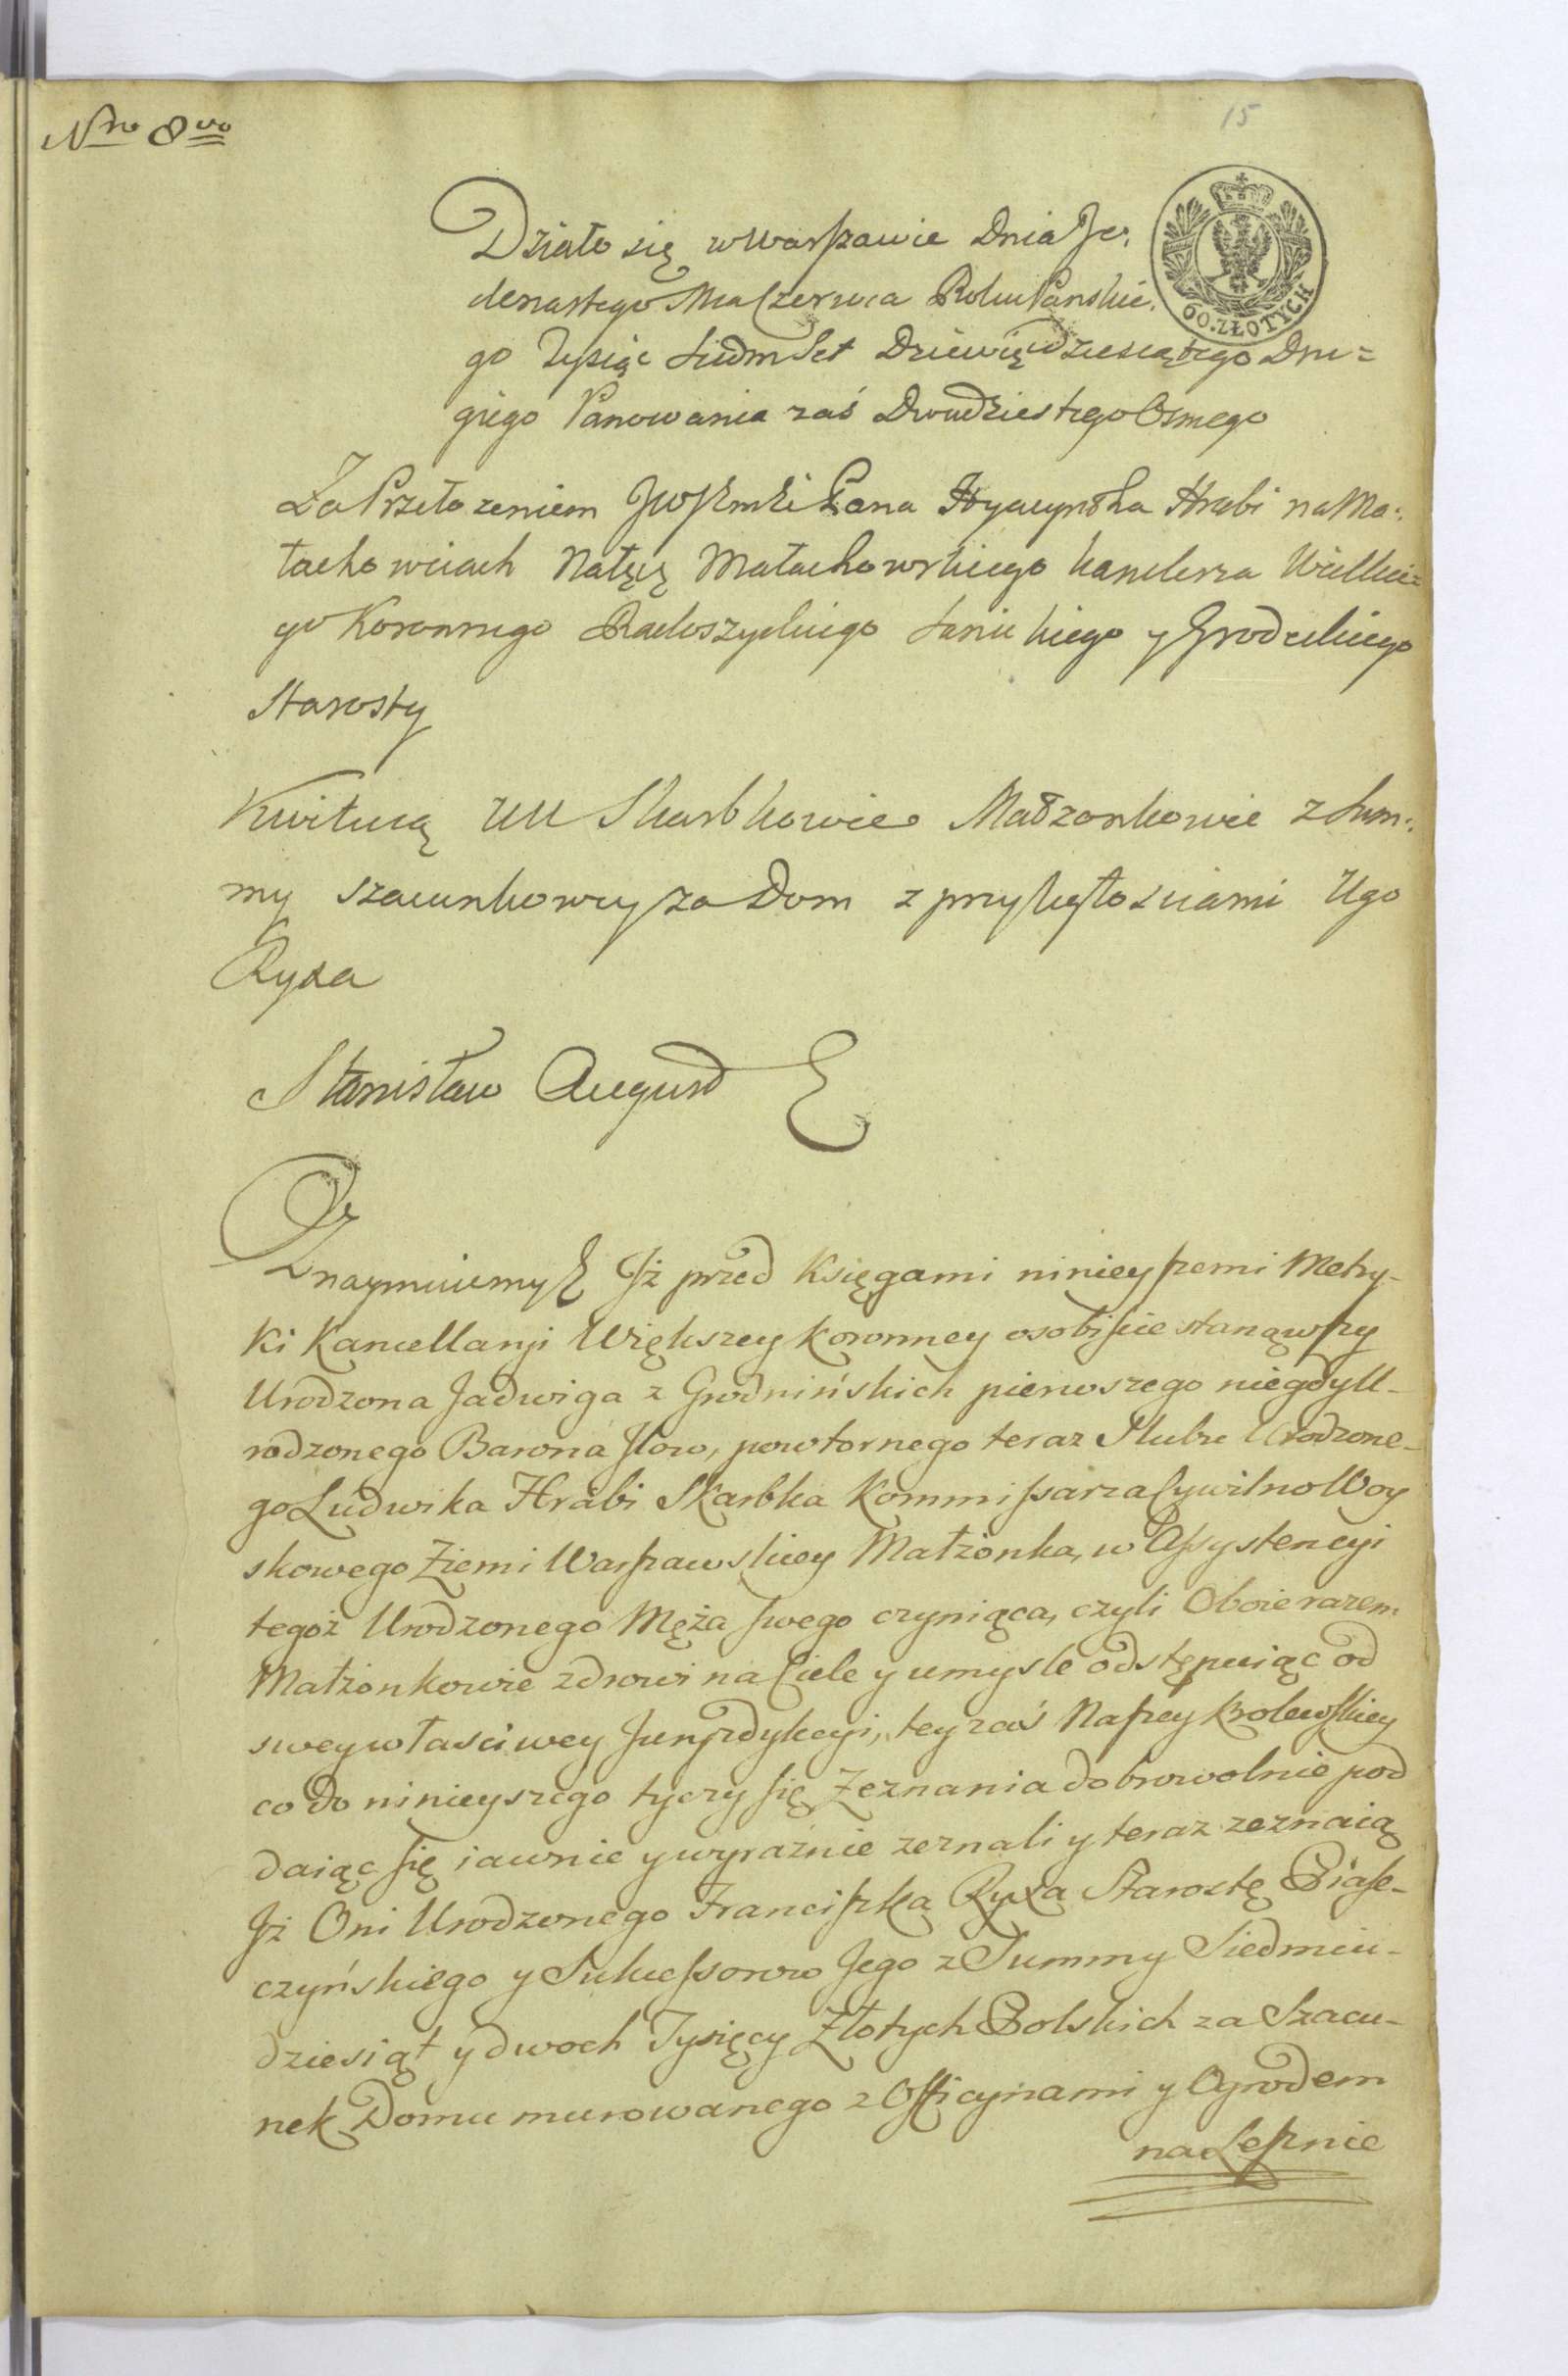 Nro 8vo
15
60. ZŁOTYCH
Działo się w Warszawie Dnia Je,
denastego Mca Czerwca Roku Panskie,
go Tysiąc Siedm Set Dziewięcdziesiątego Dru=
giego Panowania zaś Dwudziestego Osmego
Za Przełozeniem JW Pana Hyacyntha Hrabi na Ma:
łachowicach Nałęcz Małachowskiego Kanclerza Wielkie=
go Koronnego Radoszyckiego Sanickiego y Grodeckiego
Starosty
Kwituią UU Skarbkowie Małzonkowie z Sum:
my szacunkowey za Dom z przyległosciami Ugo
Ryxa
Stanisław August
Oznaymuiemy Jż przed Księgami ninieyszemi Metry-
ki Kancellaryi Większey Koronney osobiscie stanąwszy
Urodzona Jadwiga z Grodnińskich pierwszego niegdy U-
rodzonego Barona Jlow, powtornego teraz Slubu Urodzone-
go Ludwika Hrabi Skarbka Kommissarza Cywilno Woy
skowego Ziemi Warszawskiey Małżonka, w Assystencyi
tegoż Urodzonego Męża swego czyniąca, czyli Oboie razem
Małżonkowie zdrowi na Ciele y umysle odstępuiąc od
swey własciwey Juryzdykcyi, tey zaś Naszey Krolewskiey
co do ninieyszego tyczy się Zeznania dobrowolnie pod
daiąc się iawnie y wyraźnie zeznali y teraz zeznaią
Jż Oni Urodzonego Franciszka Ryxa Starostę Piase-
czyńskiego y Sukcessorow Jego z Summy Siedmiu-
dziesiąt y dwoch Tysięcy Złotych Polskich za Szacu-
nek Domu murowanego z Officynami y Ogrodem
na Lesznie